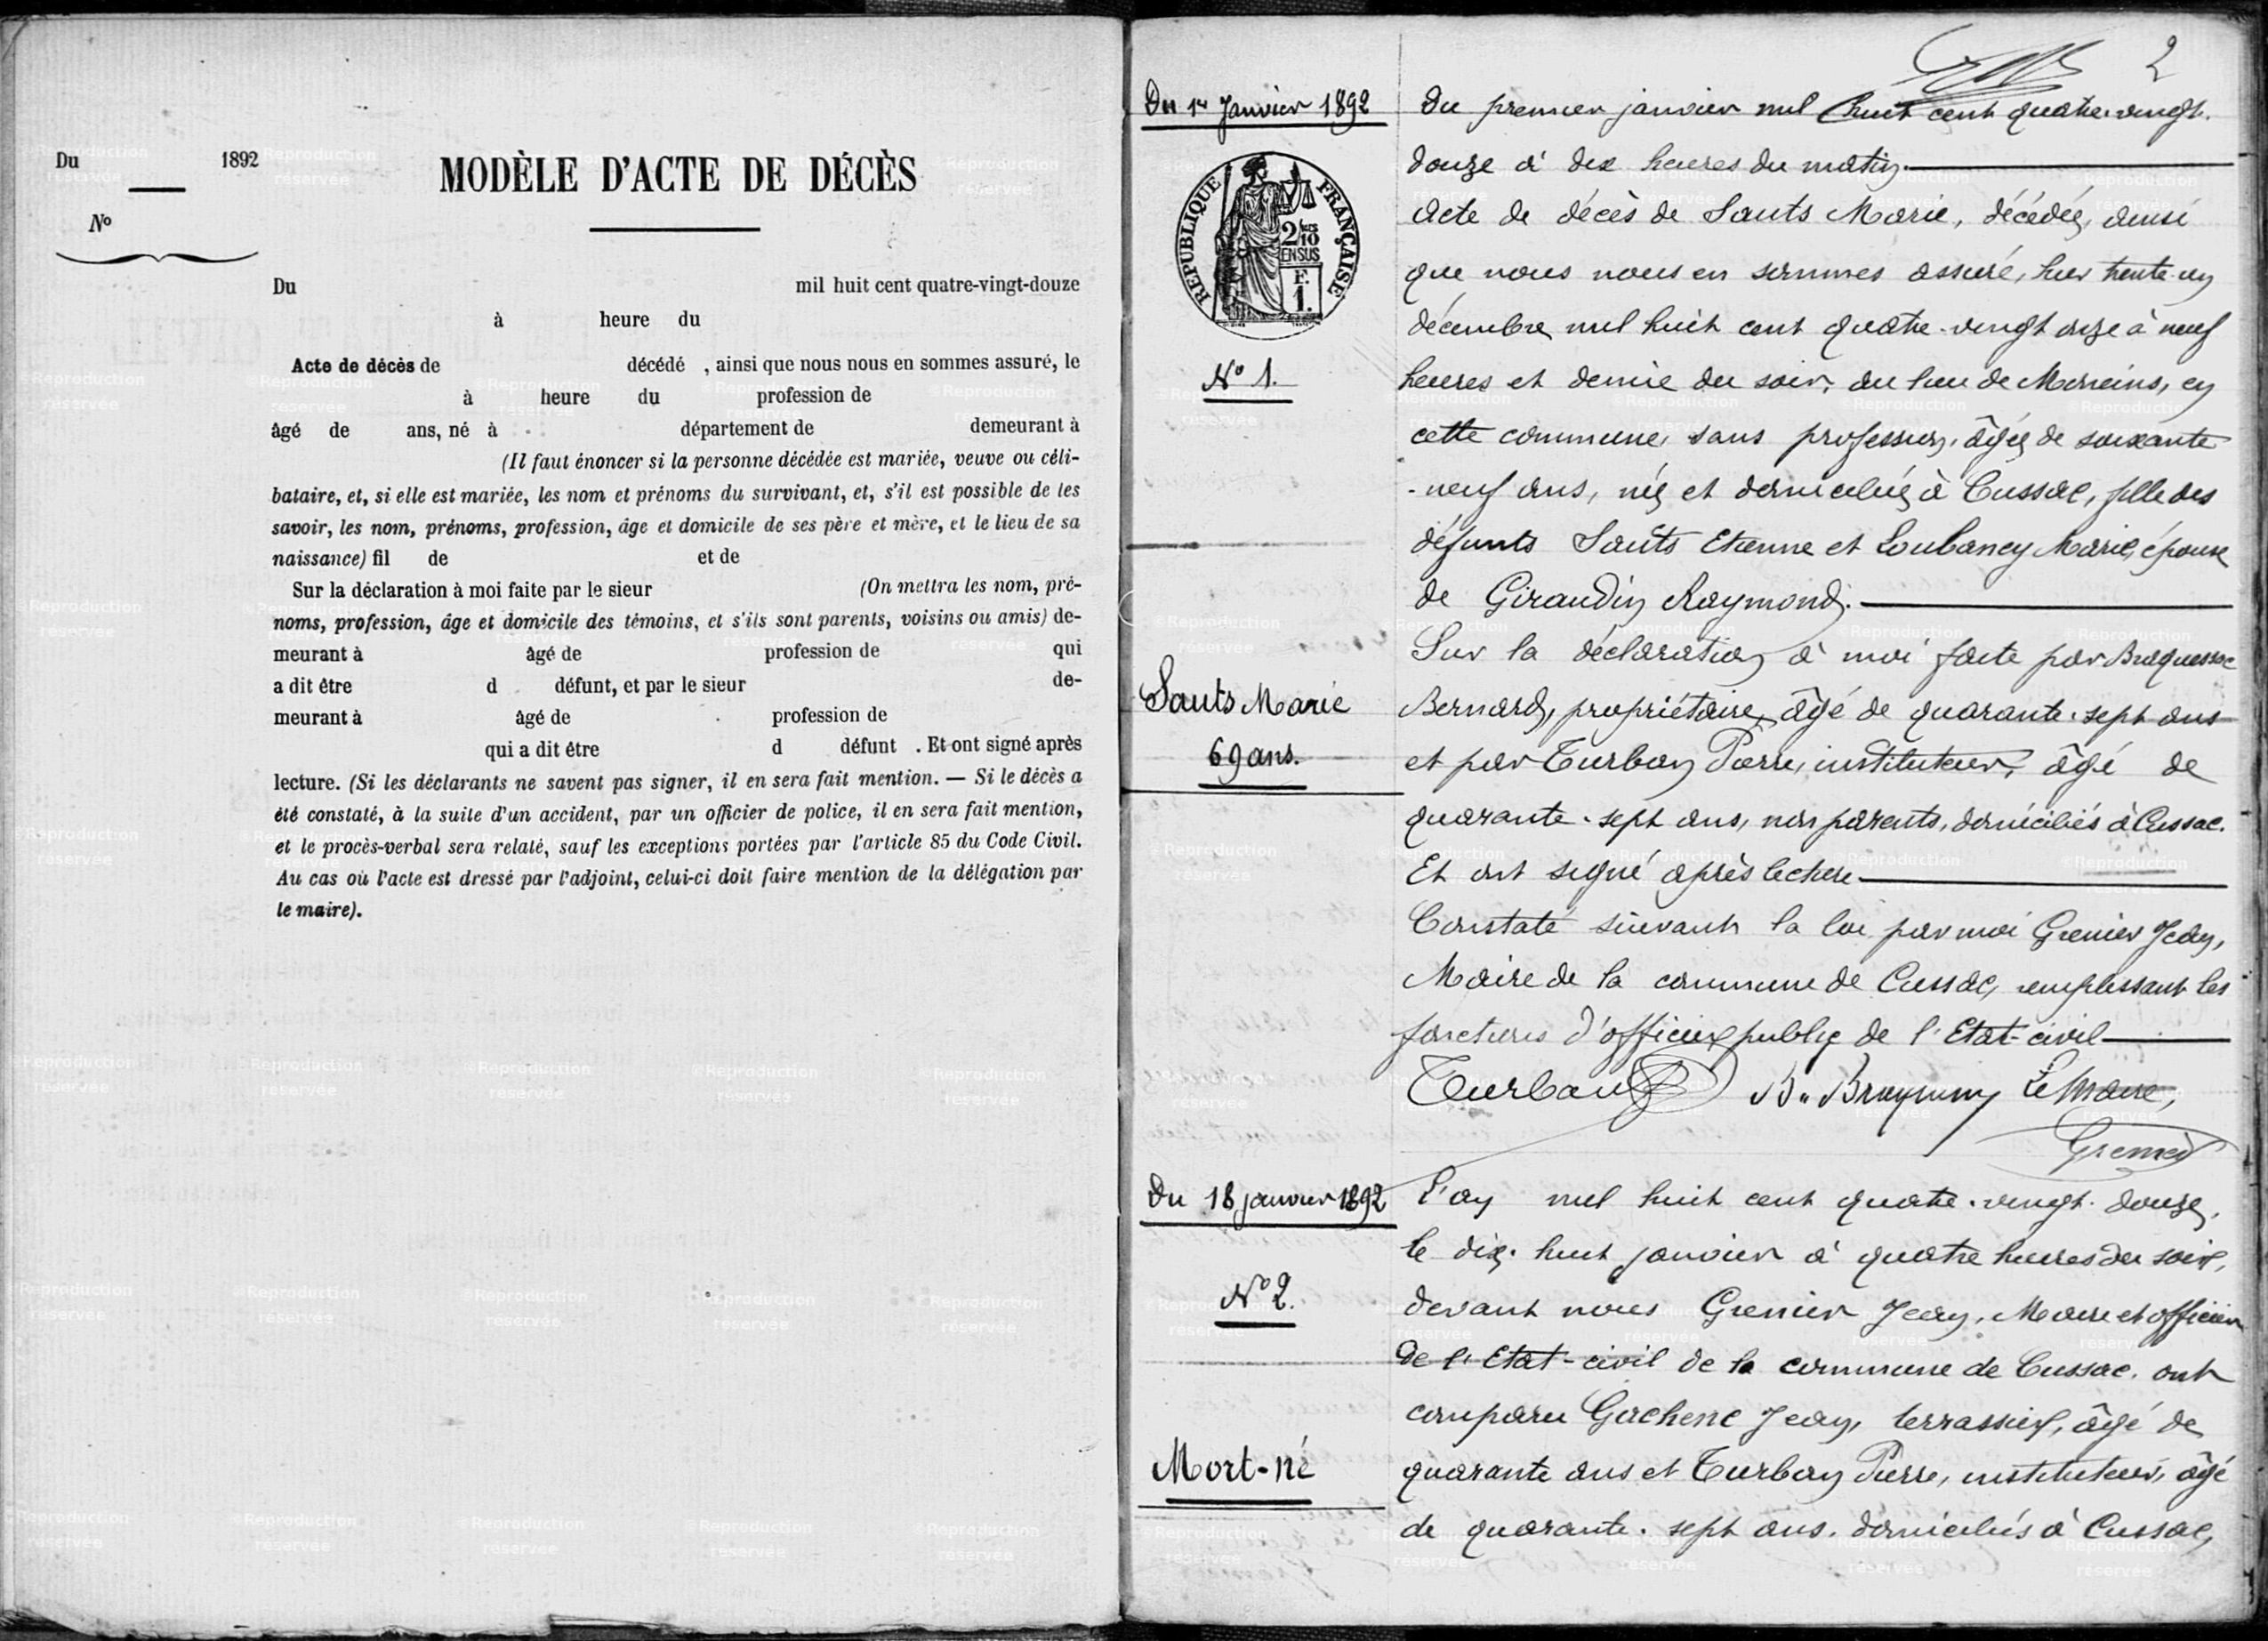 Du 1892
MODÈLE D'ACTE DE DÉCÈS
No
Du mil huit cent quatre-vingt-douze
à heure du
Acte de décès de décédé , ainsi que nous nous en sommes assuré, le
à heure du profession de
âgé de ans, né à département de demeurant à
(Il faut énoncer si la personne décédée est mariée, veuve ou céli-
bataire, et, si elle est mariée, les nom et prénoms du survivant, et, s'il est possible de les
savoir, les nom, prénoms, profession, âge et domicile de ses père et mère, et le lieu de sa
naissance) fil de et de
Sur la déclaration à moi faite par le sieur (On mettra les nom, pré-
noms, profession, âge et domicile des témoins, et s'ils sont parents, voisins ou amis) de-
meurant à âgé de profession de qui
a dit être d défunt, et par le sieur de-
meurant à âgé de profession de
qui a dit être d défunt . Et ont signé après
lecture. (Si les déclarants ne savent pas signer, il en sera fait mention. — Si le décès a
été constaté, à la suite d'un accident, par un officier de police, il en sera fait mention,
et le procès-verbal sera relaté, sauf les exceptions portées par l'article 85 du Code Civil.
Au cas où l'acte est dressé par l'adjoint, celui-ci doit faire mention de la délégation par
le maire).
2
Du 1er Janvier 1892
REPUBLIQUE FRANÇAISE
2/10
EN SUS
F.
1.
No 1.
Sauts Marie
69 ans.
Du premier janvier mil huit cent quatre-vingt-
douze à dix heures du matin.
Acte de décès de Sauts Marie, décédée, ainsi
que nous nous en sommes assuré, hier trente-un
décembre mil huit cent quatre-vingt onze à neuf
heures et demie du soir, au lieu de en
cette commune, sans profession, âgée de soixante
-neuf ans, née et domiciliée à Cussac, fille des
défunts Sauts Etienne et Loubaney Marie, épouse
de Giraudin Raymond.
Sur la déclaration à moi faite par Braquessac
Bernard, propriétaire, âgé de quarante-sept ans
et par Turban Pierre, instituteur, âgé de
quarante-sept ans, non parents, domiciliés à Cussac.
Et ont signé après lecture
Constaté suivant la loi par moi Grenier Jean,
Maire de la commune de Cussac, remplissant les
fonctions d'officier public de l'Etat-civil
Turban B. Le Maire,
Grenier
Du 18 janvier 1892
No 2.
Mort-né
L'an mil huit cent quatre-vingt-douze,
le dix-huit janvier à quatre heures du soir,
devant nous Grenier Jean, Maire et officier
de l'Etat-civil de la commune de Cussac, ont
comparu Jean, terrassier, âgé de
quarante ans et Turban Pierre, instituteur, âgé
de quarante-sept ans, domiciliés à Cussac,
©Reproduction
réservée